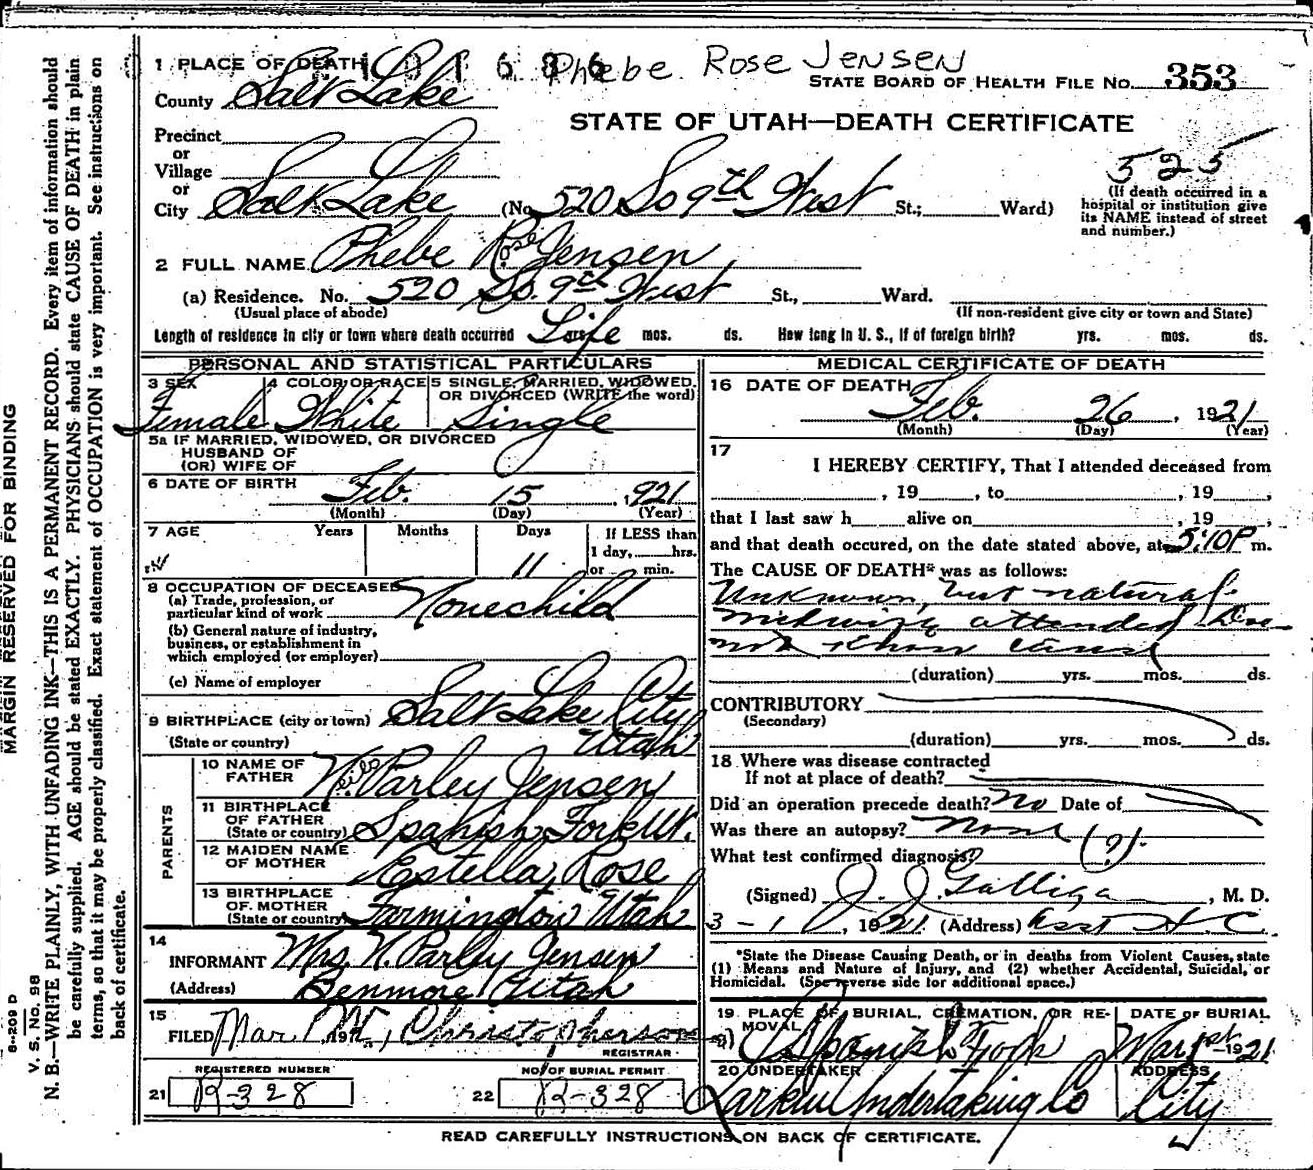 Phebe Rose Jensen
1 PLACE OF DEATH
STATE BOARD OF HEALTH FILE NO. 353
County Salt Lake
STATE OF UTAH—DEATH CERTIFICATE
Precinct
or
Village
or
525
(If death occurred in a hospital or institution give its NAME instead of street and number.)
City Salt Lake (No. 520 So 9th West St.; Ward)
2 FULL NAME Phebe Rose Jensen
(a) Residence. No. 520 So. 9th West St., Ward.
(Usual place of abode) (If non-resident give city or town and State)
Length of residence in city or town where death occurred Life yrs. mos. ds. How long in U. S., if of foreign birth? yrs. mos. ds.
PERSONAL AND STATISTICAL PARTICULARS
3 SEX 4 COLOR OR RACE 5 SINGLE, MARRIED, WIDOWED, OR DIVORCED (WRITE the word)
Female White Single
5a IF MARRIED, WIDOWED, OR DIVORCED
HUSBAND OF
(OR) WIFE OF
6 DATE OF BIRTH Feb. 15, 1921
(Month) (Day) (Year)
7 AGE Years Months Days If LESS than
1 day, hrs.
11 or min.
8 OCCUPATION OF DECEASED
(a) Trade, profession, or
particular kind of work None child
(b) General nature of industry,
business, or establishment in
which employed (or employer)
(c) Name of employer
9 BIRTHPLACE (city or town) Salt Lake City
(State or country) Utah
PARENTS
10 NAME OF
FATHER N. Parley Jensen
11 BIRTHPLACE
OF FATHER
(State or country) Spanish Fork Ut.
12 MAIDEN NAME
OF MOTHER Estella Rose
13 BIRTHPLACE
OF MOTHER
(State or country) Farmington Utah
14
INFORMANT Mrs N. Parley Jensen
(Address) Benmore Utah
15
FILED Mar 1 192 , Christopherson
REGISTRAR
REGISTERED NUMBER NO. OF BURIAL PERMIT
21 R-328 22 R-328
MEDICAL CERTIFICATE OF DEATH
16 DATE OF DEATH
Feb. 26, 1921
(Month) (Day) (Year)
17
I HEREBY CERTIFY, That I attended deceased from
, 19 , to , 19 ,
that I last saw h alive on , 19 ,
and that death occured, on the date stated above, at 5:10P m.
The CAUSE OF DEATH* was as follows:
Unknown, but natural
midwife attended Does
not know cause
(duration) yrs. mos. ds.
CONTRIBUTORY
(Secondary)
(duration) yrs. mos. ds.
18 Where was disease contracted
If not at place of death?
Did an operation precede death? No Date of
Was there an autopsy? None
What test confirmed diagnosis? (?)
(Signed) J. J. Galligan, M. D.
3-1, 1921 (Address) H. C.
*State the Disease Causing Death, or in deaths from Violent Causes, state
(1) Means and Nature of Injury, and (2) whether Accidental, Suicidal, or
Homicidal. (See reverse side for additional space.)
19 PLACE OF BURIAL, CREMATION, OR RE- DATE OF BURIAL
MOVAL Spanish Fork Mar 1st 1921
20 UNDERTAKER ADDRESS
Larkin Undertaking Co City
READ CAREFULLY INSTRUCTIONS ON BACK OF CERTIFICATE.
MARGIN RESERVED FOR BINDING
S-209 D
V. S. No. 98
N. B.—WRITE PLAINLY, WITH UNFADING INK—THIS IS A PERMANENT RECORD. Every item of information should
be carefully supplied. AGE should be stated EXACTLY. PHYSICIANS should state CAUSE OF DEATH in plain
terms, so that it may be properly classified. Exact statement of OCCUPATION is very important. See instructions on
back of certificate.